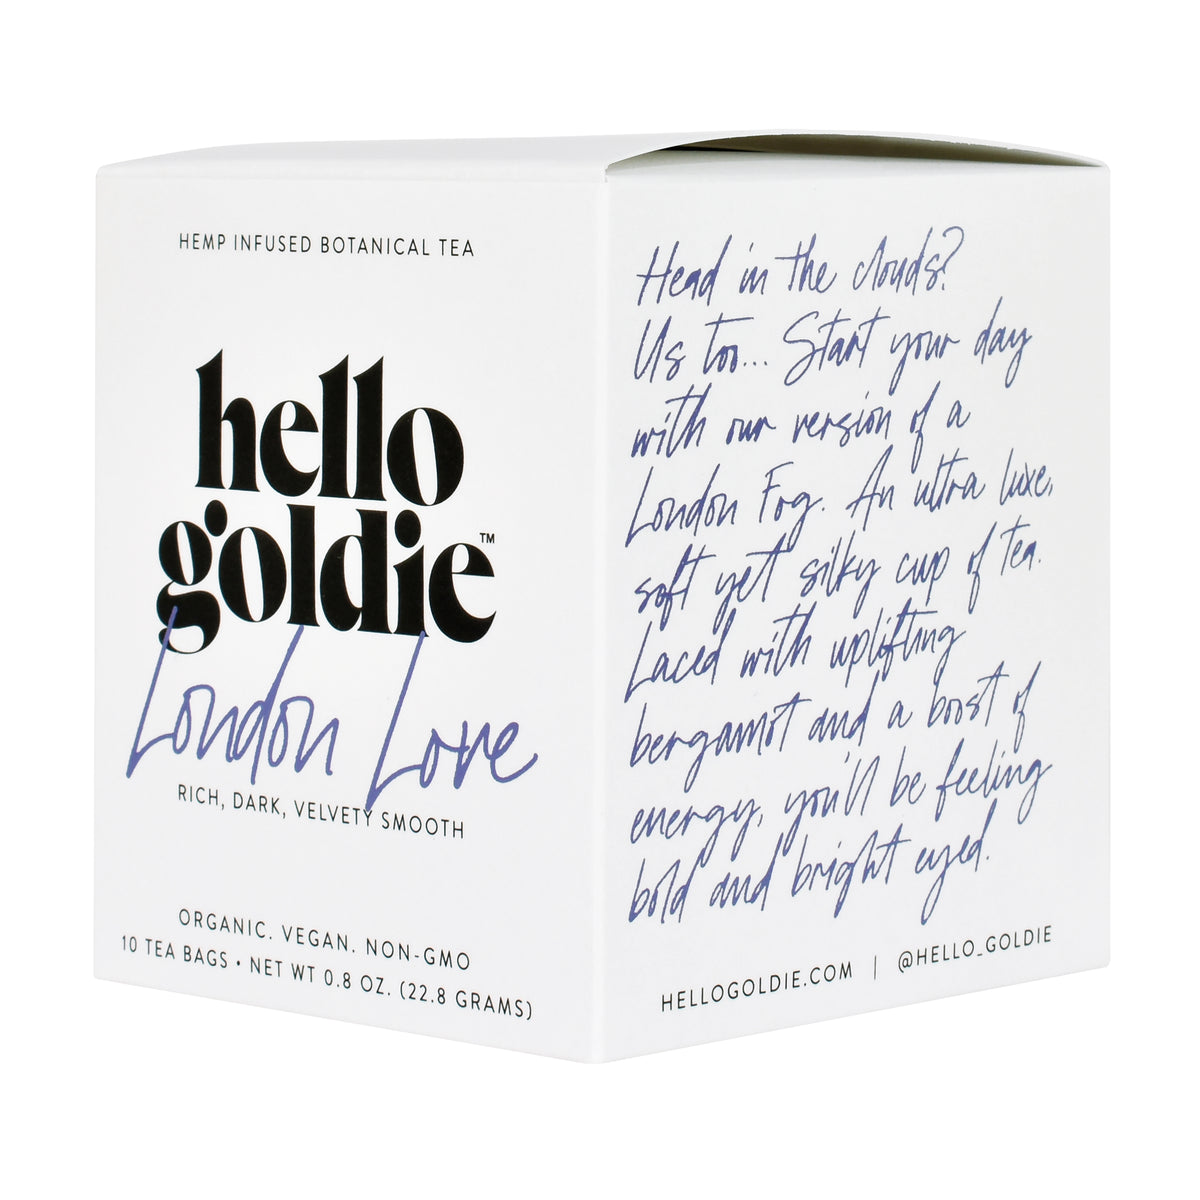 HEMP INFUSED BOTANICAL TEA
hello
goldie™
London Love
RICH, DARK, VELVETY SMOOTH
ORGANIC. VEGAN. NON-GMO
10 TEA BAGS • NET WT 0.8 OZ. (22.8 GRAMS)
Head in the clouds?
Us too... Start your day
with our version of a
London Fog. An ultra luxe,
soft yet silky cup of tea.
Laced with uplifting
bergamot and a boost of
energy, you'll be feeling
bold and bright eyed.
HELLOGOLDIE.COM | @HELLO_GOLDIE